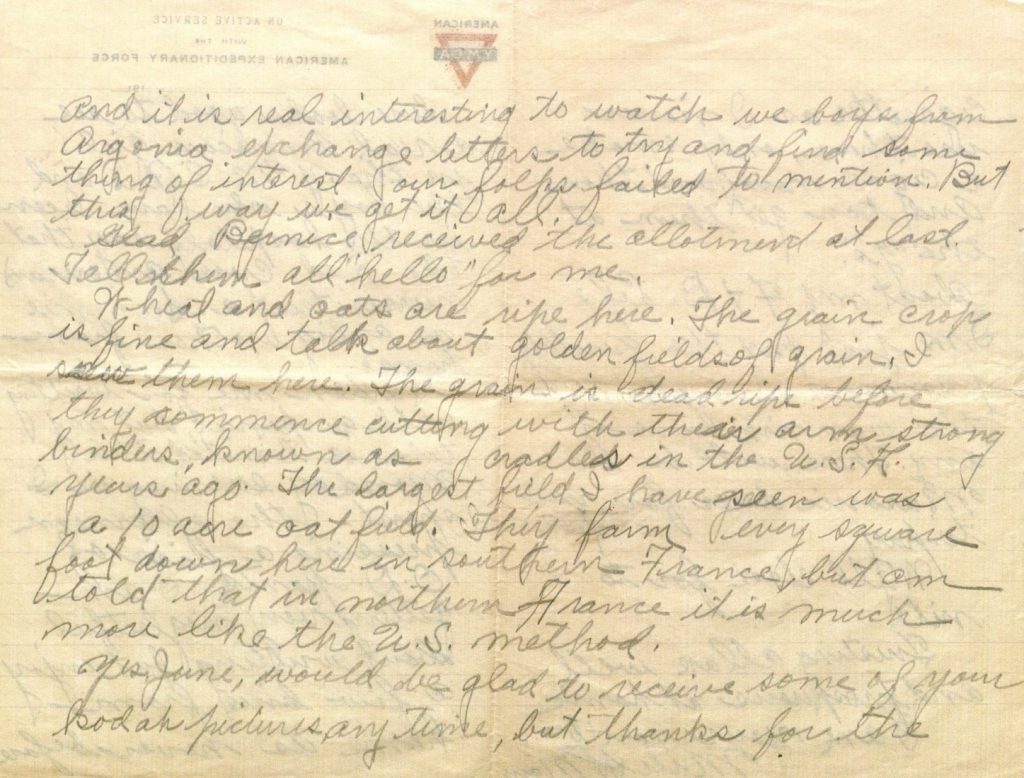 ON ACTIVE SERVICE
WITH THE
AMERICAN EXPEDITIONARY FORCE
191
AMERICAN
YMCA
And it is real interesting to watch we boys from
Argonia exchange letters to try and find some
thing of interest our folks failed to mention. But
this way we get it all.
Glad Bernice received the allotment at last.
Tell them all "hello" for me.
Wheat and oats are ripe here. The grain crop
is fine and talk about golden fields of grain, I
saw them here. The grain is dead ripe before
they commence cutting with their arm strong
binders, known as cradles in the U.S.A.
years ago. The largest field I have seen was
a 10 acre oat field. They farm every square
foot down here in southern France, but am
told that in northern France it is much
more like the U.S. method.
Yes, June, would be glad to receive some of your
kodak pictures any time, but thanks for the